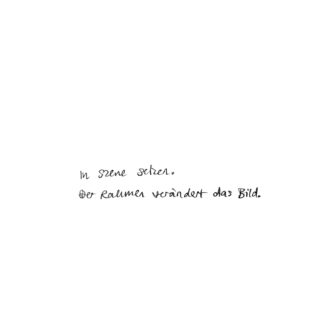 In Szene setzen.
Der Rahmen verändert das Bild.